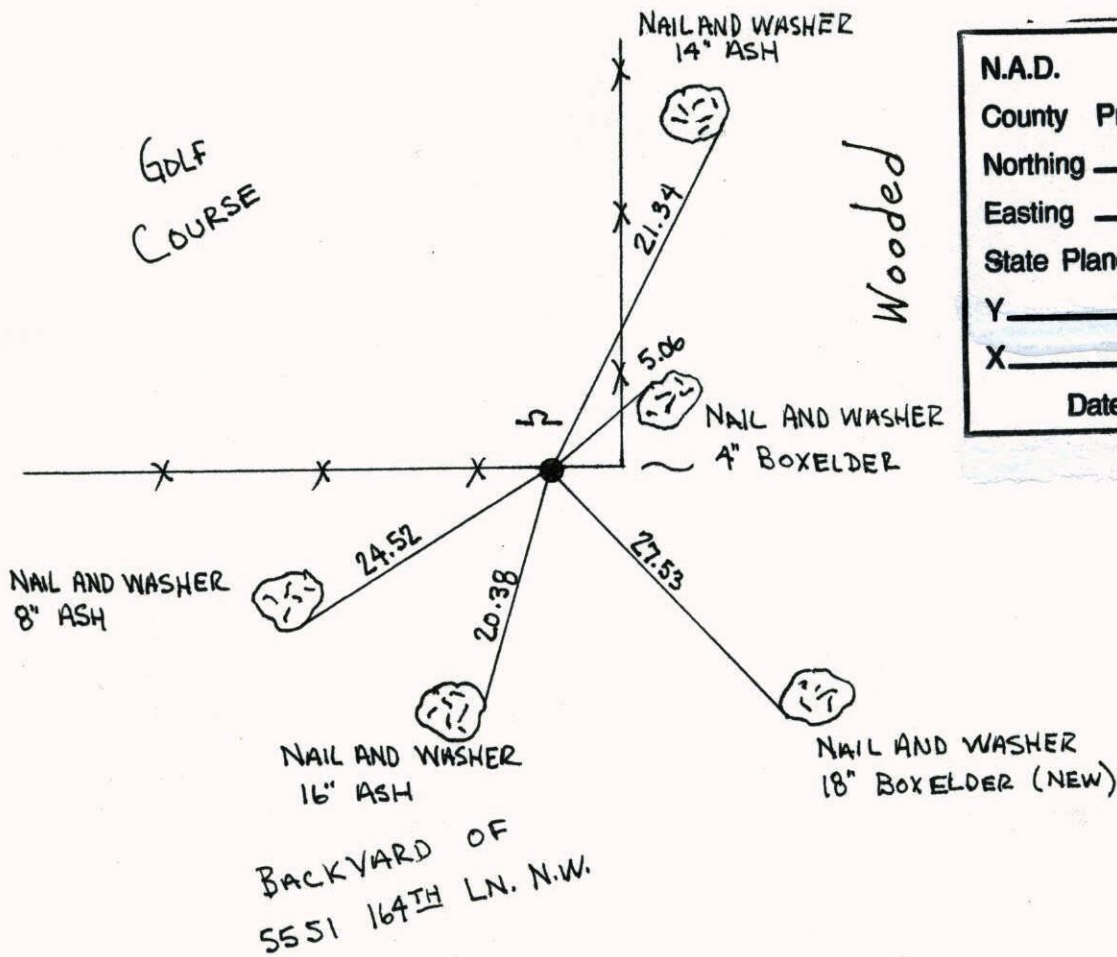 NAIL AND WASHER
14" ASH
GOLF
COURSE
Wooded
21.34
5.06
NAIL AND WASHER
4" BOXELDER
24.52
20.38
27.53
NAIL AND WASHER
8" ASH
NAIL AND WASHER
16" ASH
NAIL AND WASHER
18" BOXELDER (NEW)
BACKYARD OF
5551 164TH LN. N.W.
N.A.D.
County
Northing
Easting
State
Y
X
Date